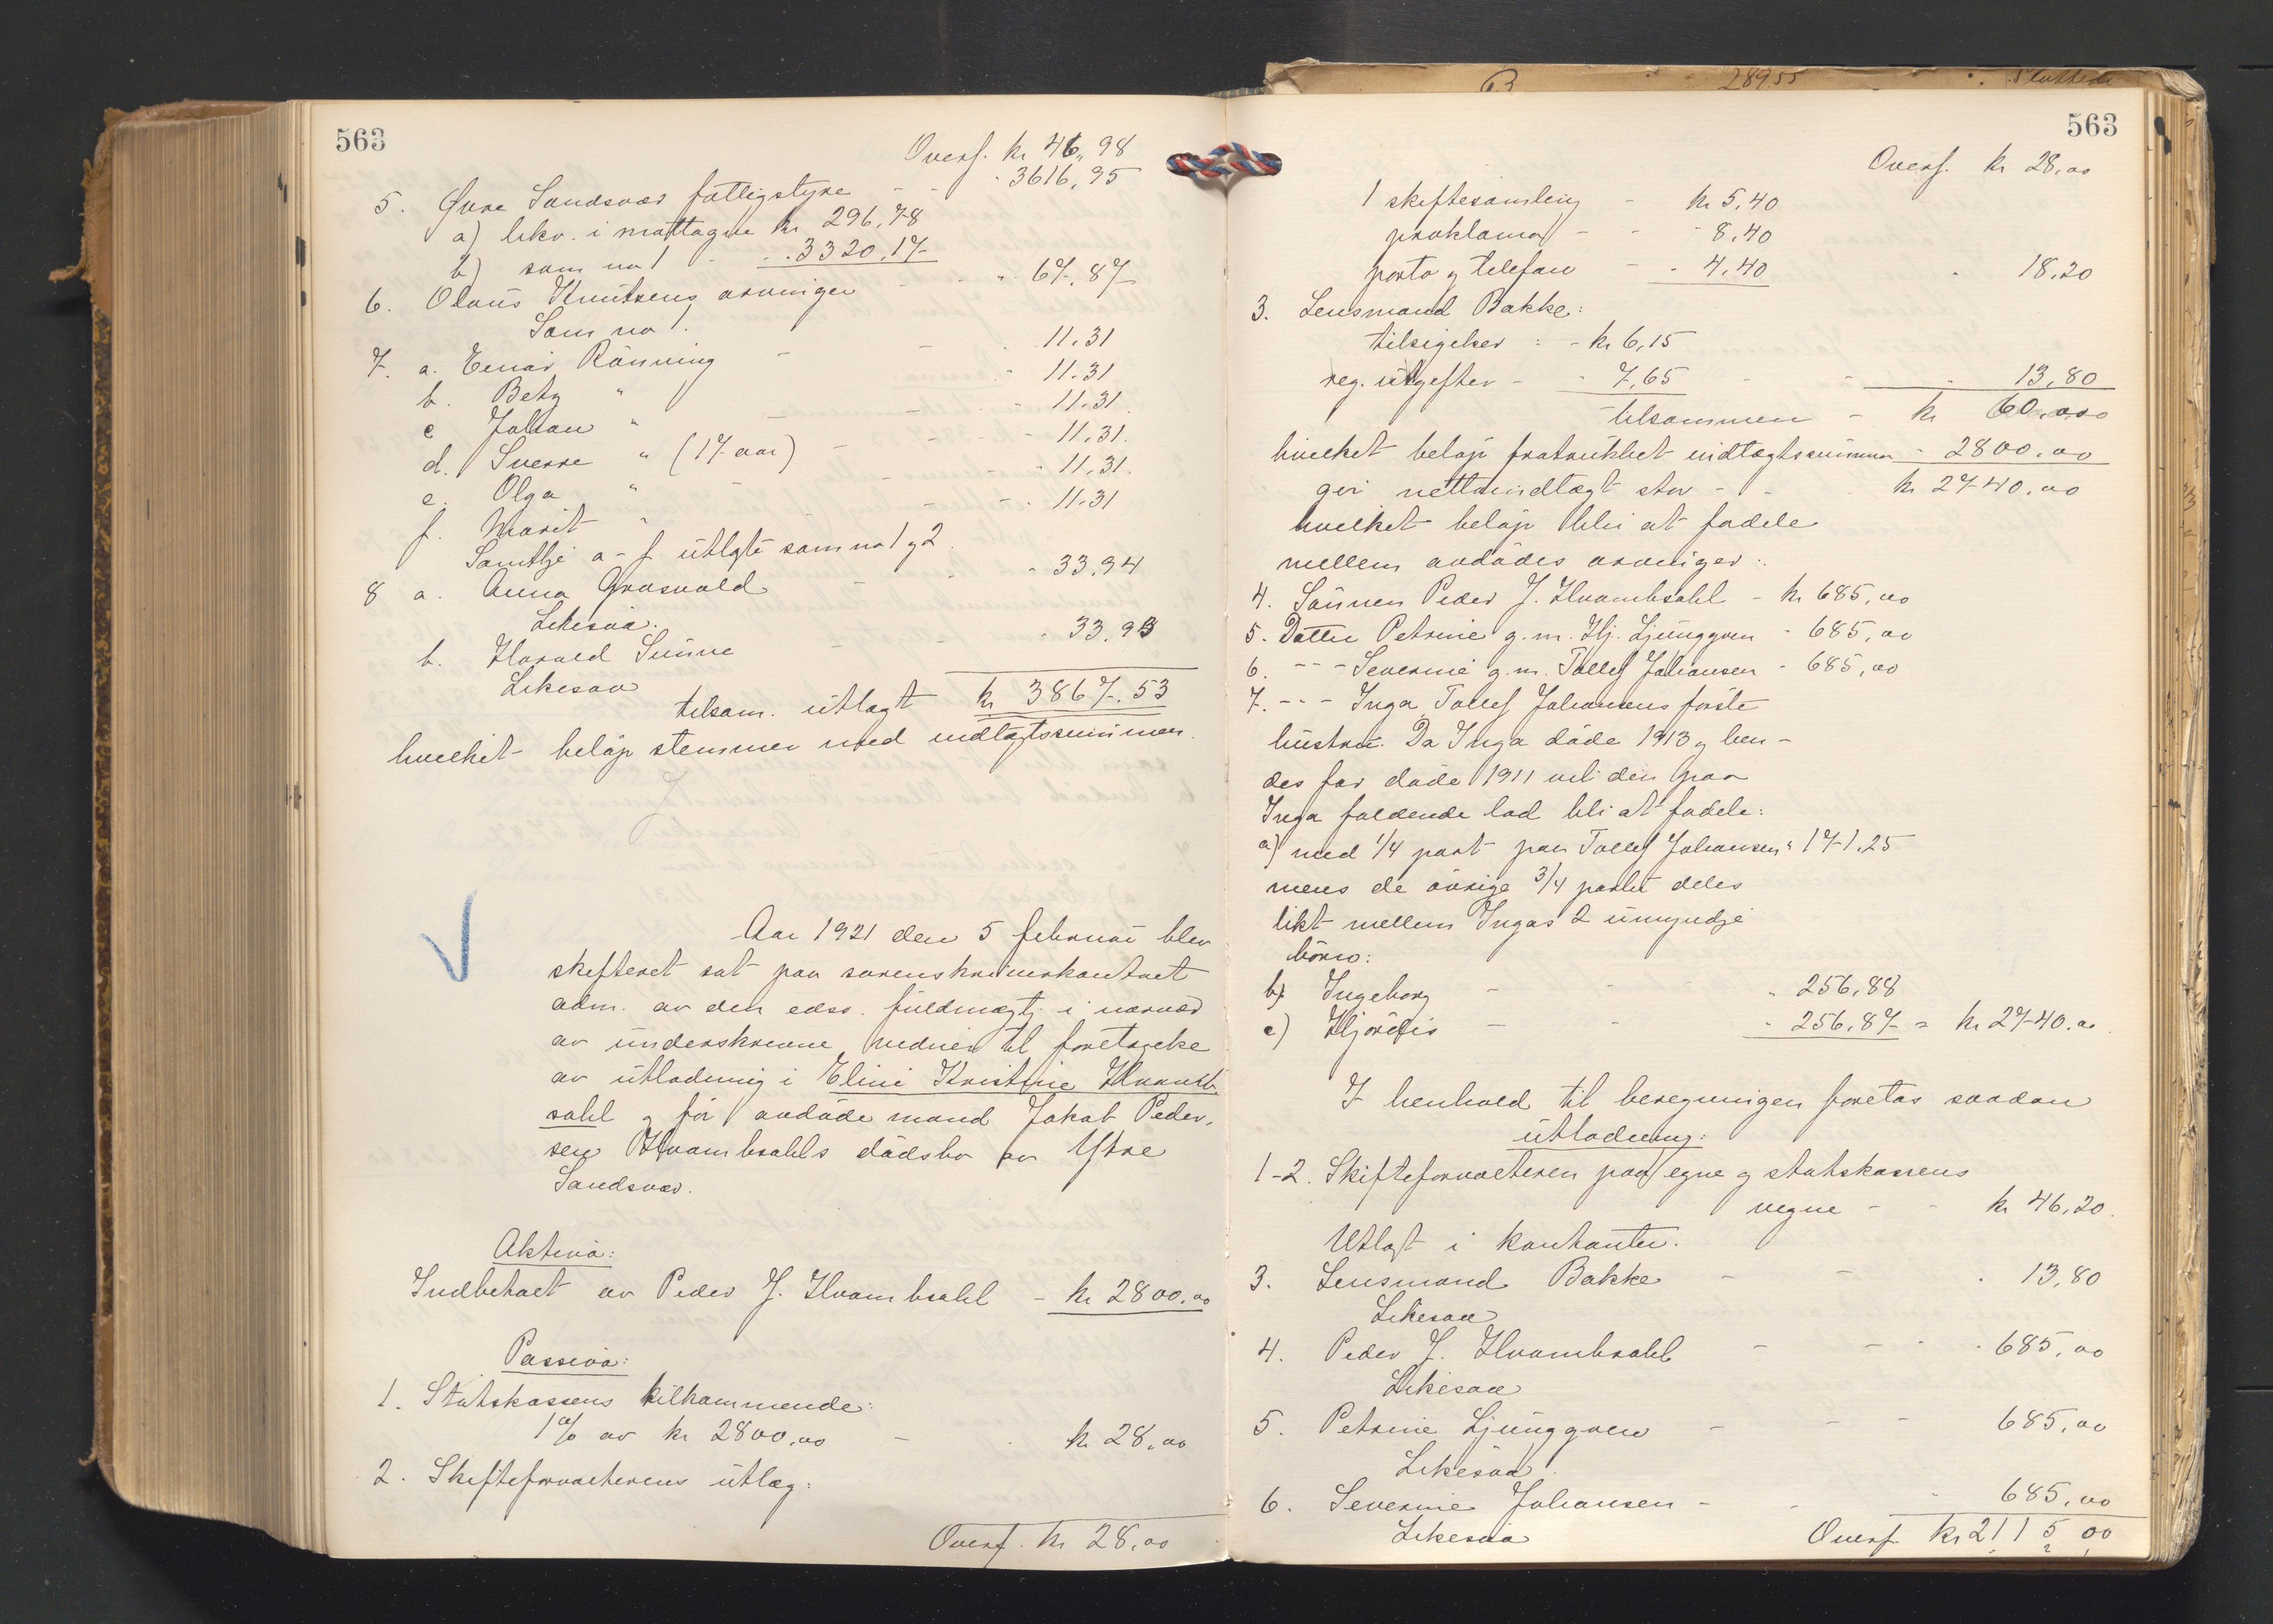 563
Overf. kr 46,98
5. Øvre Sandsvær fattigstyre - - 3616,95
a) likv. i mottagne kr 296,78
b) som no 1 - - 3320,17
6. Olaus Knutsens arvinger - - 67,87
Som no 1.
7. a. Einar Rönning - - 11.31
b. Betzy " - 11.31
c Johan " - 11.31
d. Sverre " (17 aar) - - 11.31.
e. Olga " - - 11.31.
f. Marit " - - 11.31
Samtlige a-f utlagte som no 1 og 2.
8 a. Anna Grosvold - - 33.94
Likesaa.
b. Harald Sunne - - 33.93
Likesaa
tilsam. utlagt kr 3867.53
hvilket beløp stemmer med indtægtssummen.
Aar 1921 den 5 februar blev
skifteret sat paa sorenskriverkontoret
adm. av den edsv. fuldmægtig i nærvær
av underskrevne vidner til foretagelse
av utlodning i Eline Kristine Hvambsahl og før avdøde mand Jakob Pedersen Hvambsahls dødsbo av Ytre
Sandsvær.
Aktiva:
Indbetalt av Peder J. Hvambsahl - kr 2800,00
Passiva:
1. Statskassens tilkommende:
1% av kr 2800,00 - - kr 28,00
2. Skifteforvalterens utlæg:
Overf. kr 28,00
28955
563
Overf. kr 28,00
1 skiftesamling - kr 5,40
proklama - - - 8,40
porto og telefon - - 4,40 - 18,20
3. Lensmand Bakke:
tilsigelser : - kr 6,15
reg. utgifter - - 7,65 - - 13,80
tilsammen - kr 60,00
hvilket beløp fratrukket indtægtssummen - 2800,00
gir nettoindtægt stor - - kr 2740,00
hvilket beløp blir at fordele
mellem avdødes arvinger:
4. Sønnen Peder J. Hvambsahl - kr 685,00
5. Datter Petrine g.m. Hj. Ljunggren - 685,00
6. - - - Severine g.m. Tollef Johansen - 685,00
7. - - - Inga Tollef Johansens første
hustru. Da Inga døde 1913 og hendes far døde 1911 vil den paa
Inga faldende lod bli at fordele:
a) med 1/4 part paa Tollef Johansen " 171,25
mens de øvrige 3/4 parter deles
likt mellem Ingas 2 umyndige
børn:
b) Ingeborg - - - - 256,88
c) Hjørdis - - - 256,87 = kr 2740.00
I henhold til beregningen foretas saadan
utlodning:
1-2. Skifteforvalteren paa egne og statskassens
vegne - - kr 46,20.
Utlagt i kontanter.
3. Lensmand Bakke - - - 13,80
Likesaa
4. Peder J. Hvambsahl - - - 685,00
Likesaa
5. Petrine Ljunggren - - - 685,00
Likesaa.
6. Severine Johansen - - - 685,00
Likesaa
Overf. kr 2115,00